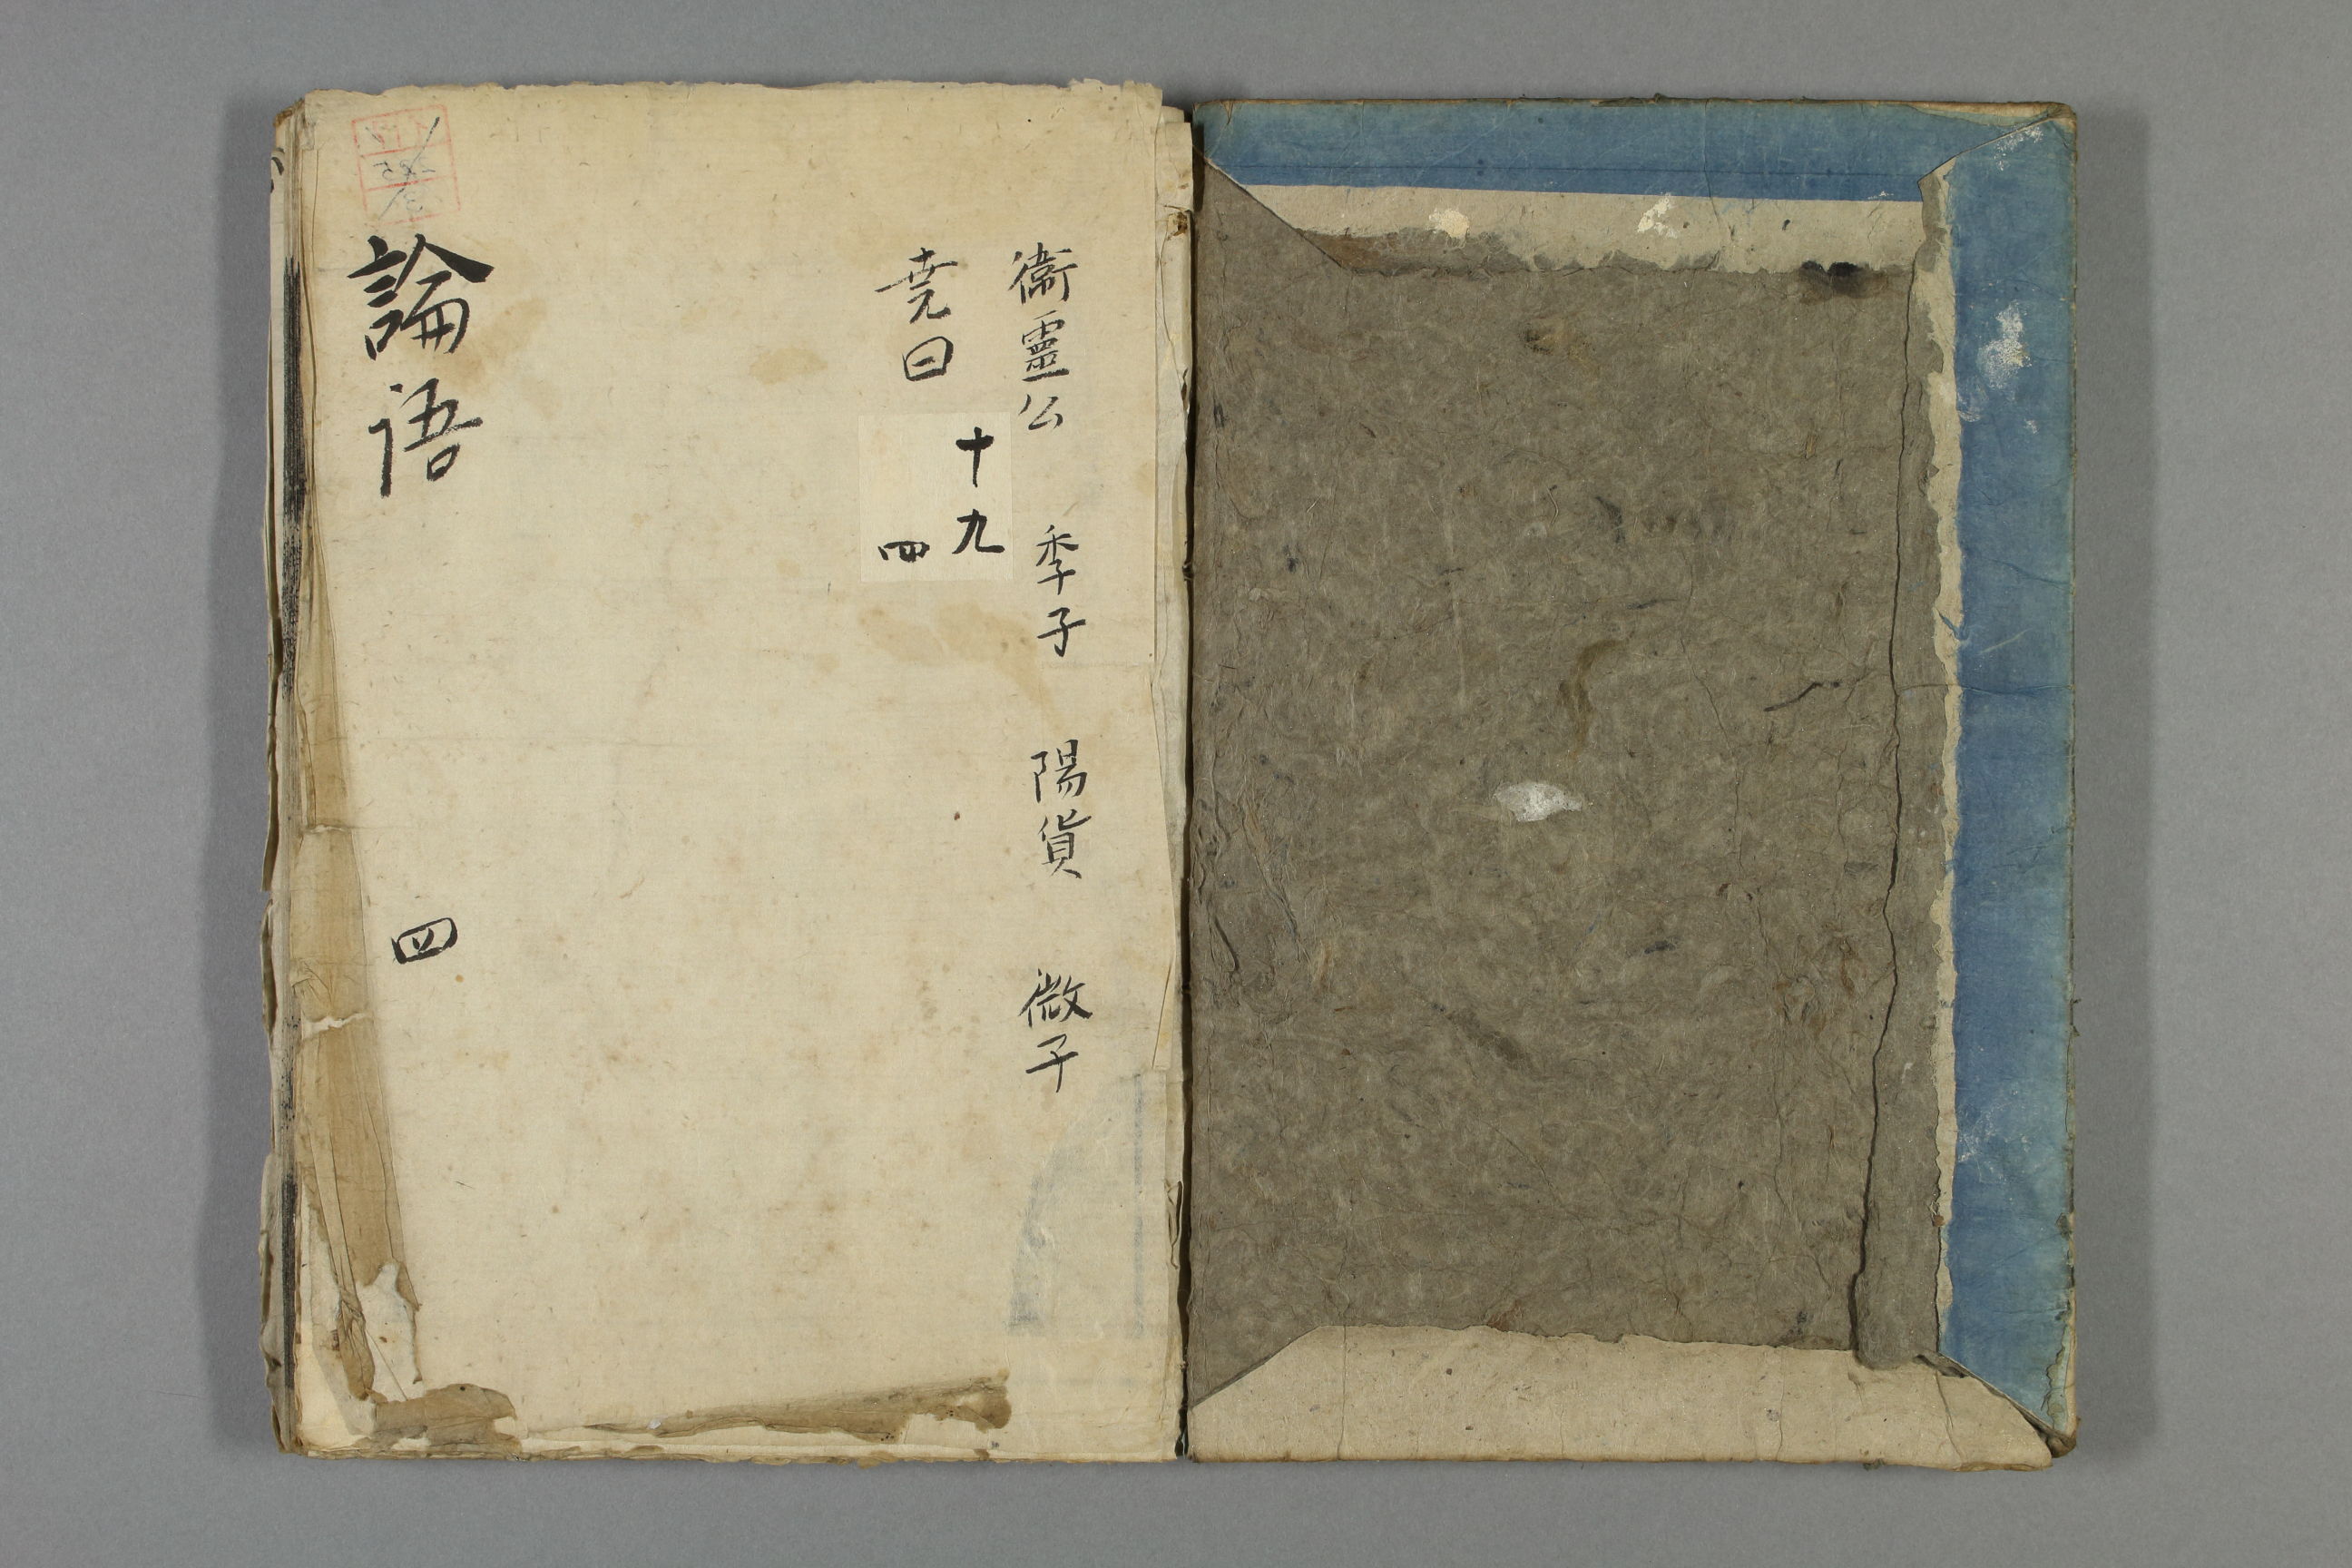 衞靈公 季子 陽貨 微子
堯曰
十九
四
論語 四